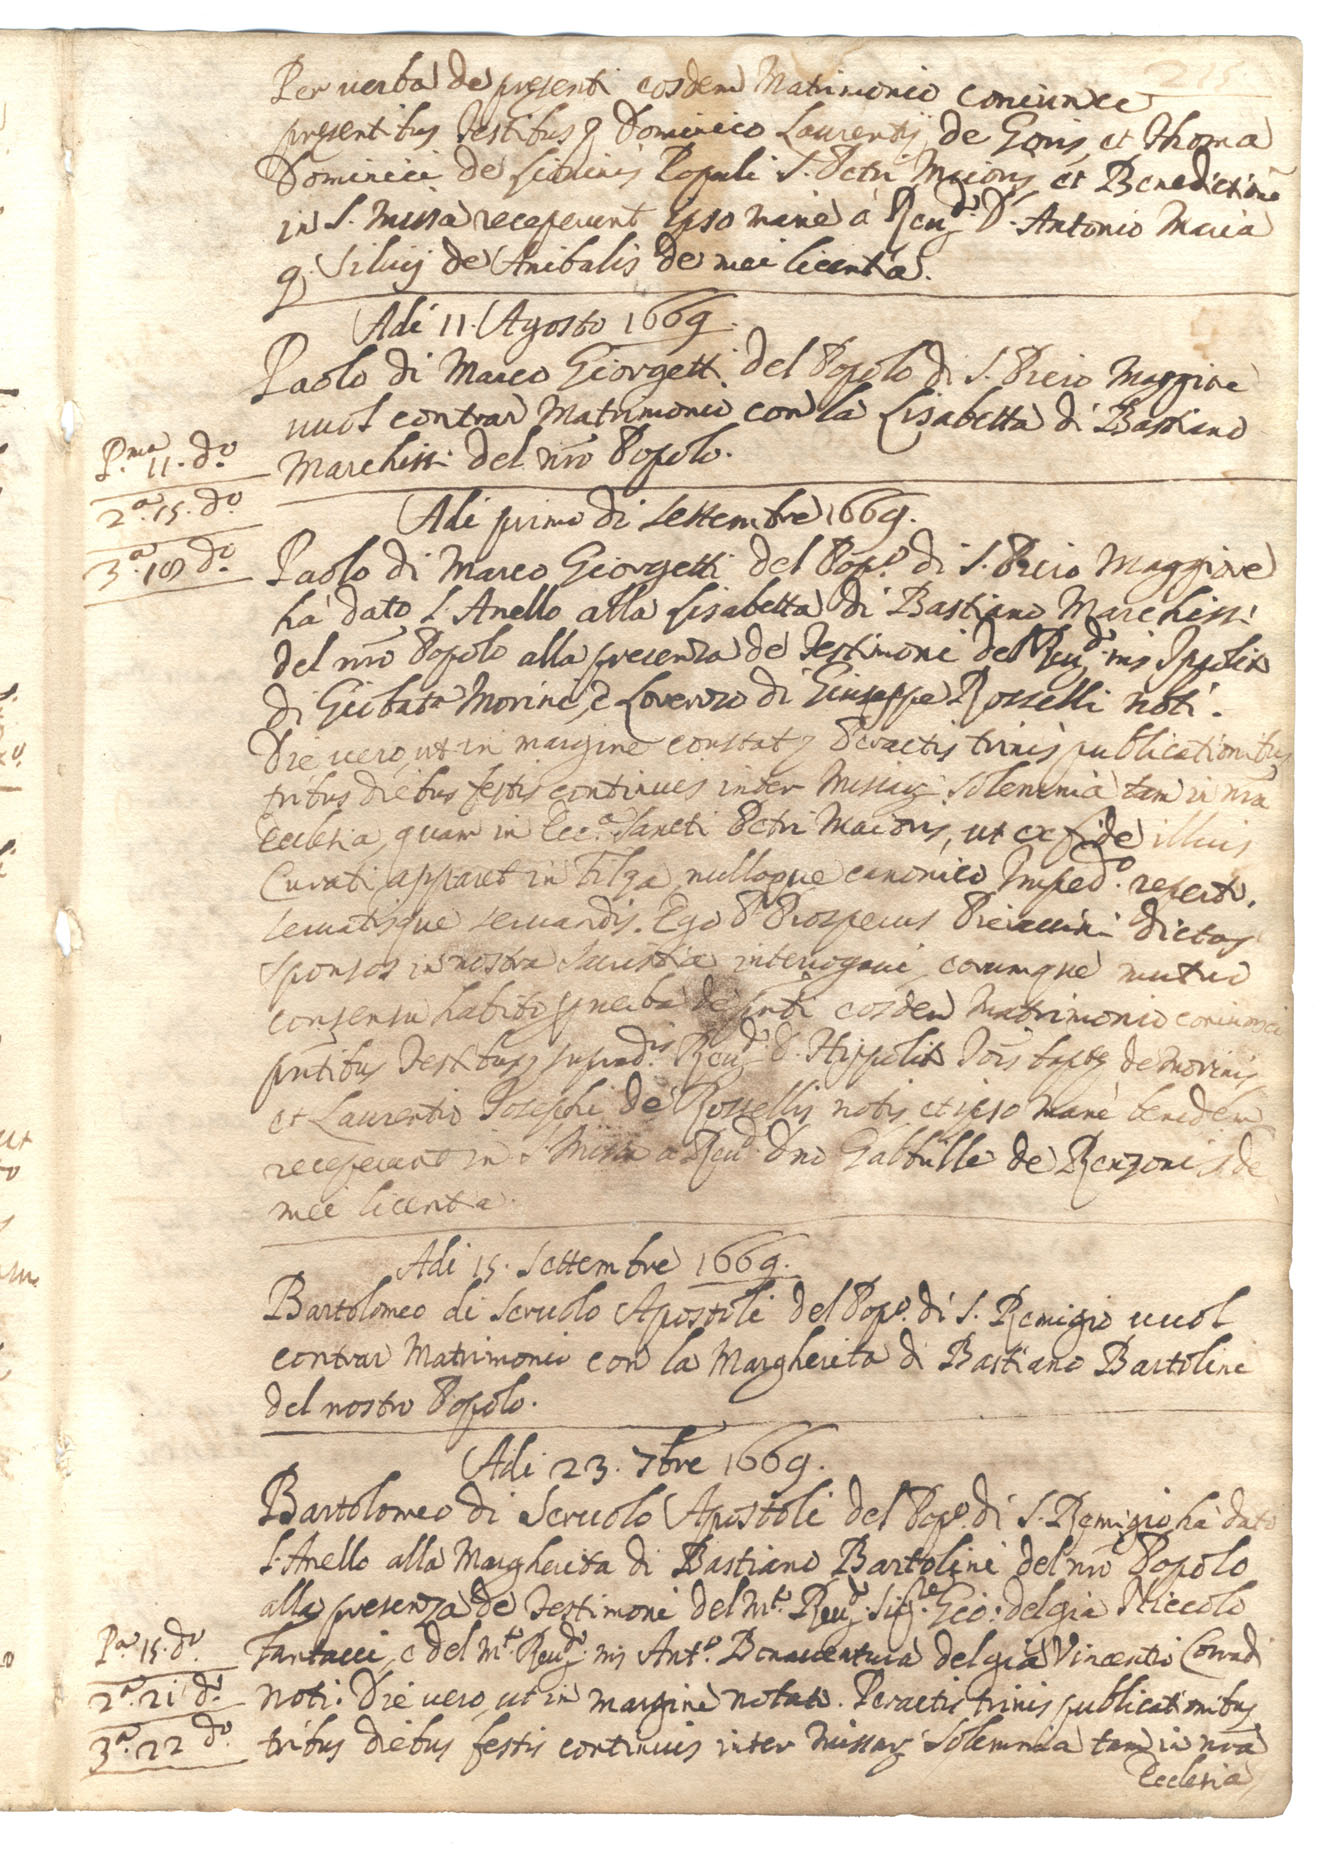 215
Per verba de presenti eosdem Matrimonio coniunxi
presentibus Testibus q Dominico Laurentij de Goris, et Thoma
Dominici de Populi S. Petri Maioris et Benedictione
in S. Missa receperunt ipso mane à Reu.do D. Antonio Maria
q. Siluij de Anibalis de mei licentia.
Adi 11. Agosto 1669.
Paolo di Marco Giorgetti del Popolo di S. Piero Maggiore
uuol contrar Matrimonio con la Lisabetta di Bastiano
Marchissi del nro Popolo.
P.ma 11. d.o
2.a 15. d.o
3.a 18 d.o
Adi primo di Settembre 1669.
Paolo di Marco Giorgetti del Pop.o di S. Piero Maggiore
hà dato l'Anello alla Lisabetta di Bastiano Marchissi
del nro Popolo alla presenza de Testimoni del Reu.do ms Ippolito
di Giobata Morini, e Lorenzo di Giuseppe Rosselli noti.
Die uero, ut in margine constat, Peractis trinis publicationibus
tribus diebus festis continuis inter Missar. Solemnia tam in nra
Ecclesia, quam in Ecc.a Sancti Petri Maioris, ut ex fide illius
Curati apparet in Filza, nulloque canonico Imped.o reperto,
seruatisque seruandis. Ego P. Prosperus Pieraccini dictos
sponsos in nostra Sacristia interrogaui, eorumque mutuo
consensu habito p uerba de pnti eosdem Matrimonio coniunxi
pntibus Testibus suprad.is Reu.do D. Hippolito Jois baptae de Morinis
et Laurentio Josephi de Rossellis notis, et ipso mane bened.em
receperunt in S. Missa a Reu.do Dno Gabrielle de Renzonis de
mei licentia.
Adi 15. Settembre 1669.
Bartolomeo di Seruolo Apostoli del Pop.o di S. Remigio uuol
contrar Matrimonio con la Margherita di Bastiano Bartolini
del nostro Popolo.
Adi 23. 7bre 1669.
Bartolomeo di Seruolo Apostoli del Pop.o di S. Remigio hà dato
l'Anello alla Margherita di Bastiano Bartolini del nro Popolo
alla presenza de Testimoni del M.to Reu.do Sig.re Gio: del già Niccolo
P.a 15. d.o
Fantacci, e del M.to Reu.do ms Ant.o Bonauentura del già Vincentio Corradi
2.a 21 d.o
noti. Die uero, ut in margine notato. Peractis trinis publicationibus
3.a 22 d.o
tribus diebus festis continuis inter Missar. Solemnia tam in nra
Ecclesia